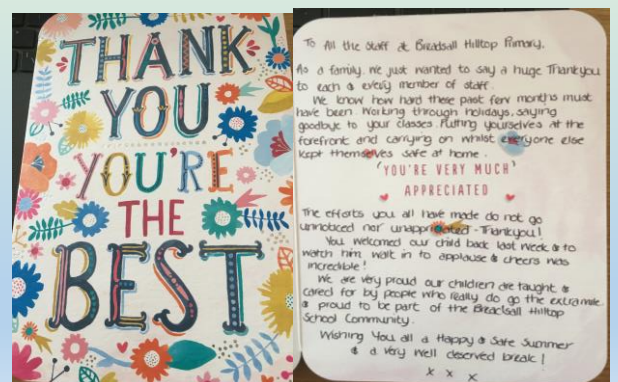 THANK
YOU
YOU'RE
THE
BEST
To All the staff at Breadsall Hilltop Primary,
As a family, we just wanted to say a huge Thankyou
to each & every member of staff.
We know how hard these past few months must
have been. Working through holidays, saying
goodbye to your classes. Putting yourselves at the
forefront and carrying on whilst everyone else
kept themselves safe at home.
'YOU'RE VERY MUCH'
APPRECIATED
The efforts you all have made do not go
unnoticed nor unappreciated - Thankyou!
You welcomed our child back last week & to
watch him walk in to applause & cheers was
incredible!
We are very proud our children are taught &
cared for by people who really do go the extra mile
& proud to be part of the Breadsall Hilltop
School Community.
Wishing You all a Happy & Safe Summer
& a very well deserved break!
x x x